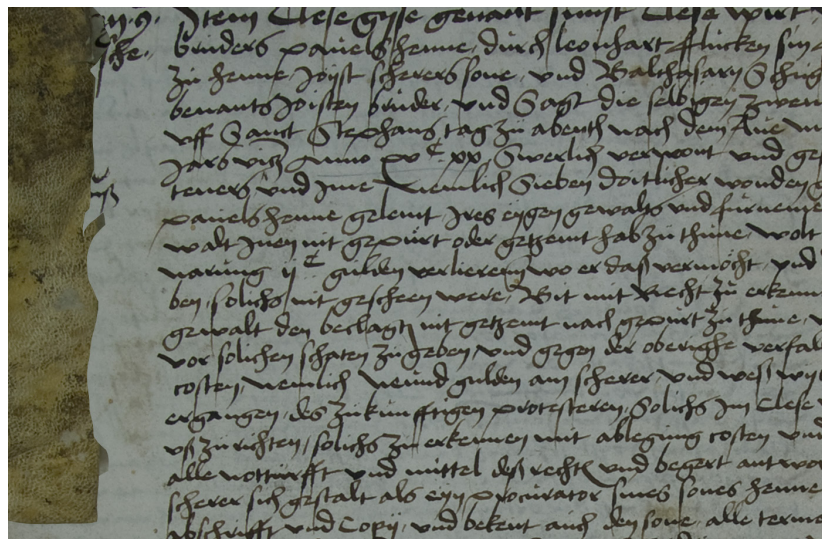 Item Clese gyse genant sunst Clese wirt
bruders pauels henne, durch leonhart flucken sin
zu henne, Joist scherers sone, und Balthasarn Schu
benants Joisten bruder, und Sagt die selbigen zwen
uff Sanct Stephans tag zu abenth nach dem Aue
Jars viz Anno xv c xx, Swerlich verwont und ge
teuers und Jme Nemlich Sieben doitlicher wonden
pauels henne gelemt, Jres eygen gewalts und furneme
walt Jnen nit gepurt oder getzemt hab zu thune wolt
narung ij c gulden verlieren, wo er das vermocht, und
ben, solichs nit gescheen were, Bit mit Recht zu erkenn
gewalt den beclagten nit getzemt nach gepurt zu thune,
vor solichen schaten zu geben, und gegen der oberighe verfal
costen, Nemlich Neund gulden am scherer, und wes
ergangen, des zukunfftigen protesteren, Solichs Jm Clese
us zu richten, solichs zu erkennen mit ablegung costen und
alle notturfft und mittel des rechten und begert antwo
scherer sich gestalt als eyn procurator sines sones henne
abschrifft und Copij, und bekent auch den sone, alle terme